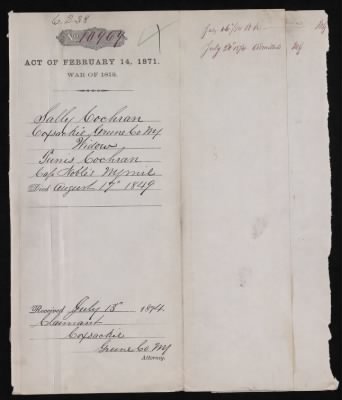 6238
No 10909
ACT OF FEBRUARY 14, 1871.
WAR OF 1812.
Sally Cochran
Coxsackie, Greene Co NY
Widow,
Tunis Cochran
Cap Nobles NY mil
Died August 17" 1849
Received July 13" 1874.
Claimant
Coxsackie
Greene Co NY
Attorney.
July 28" 1874 Admitted